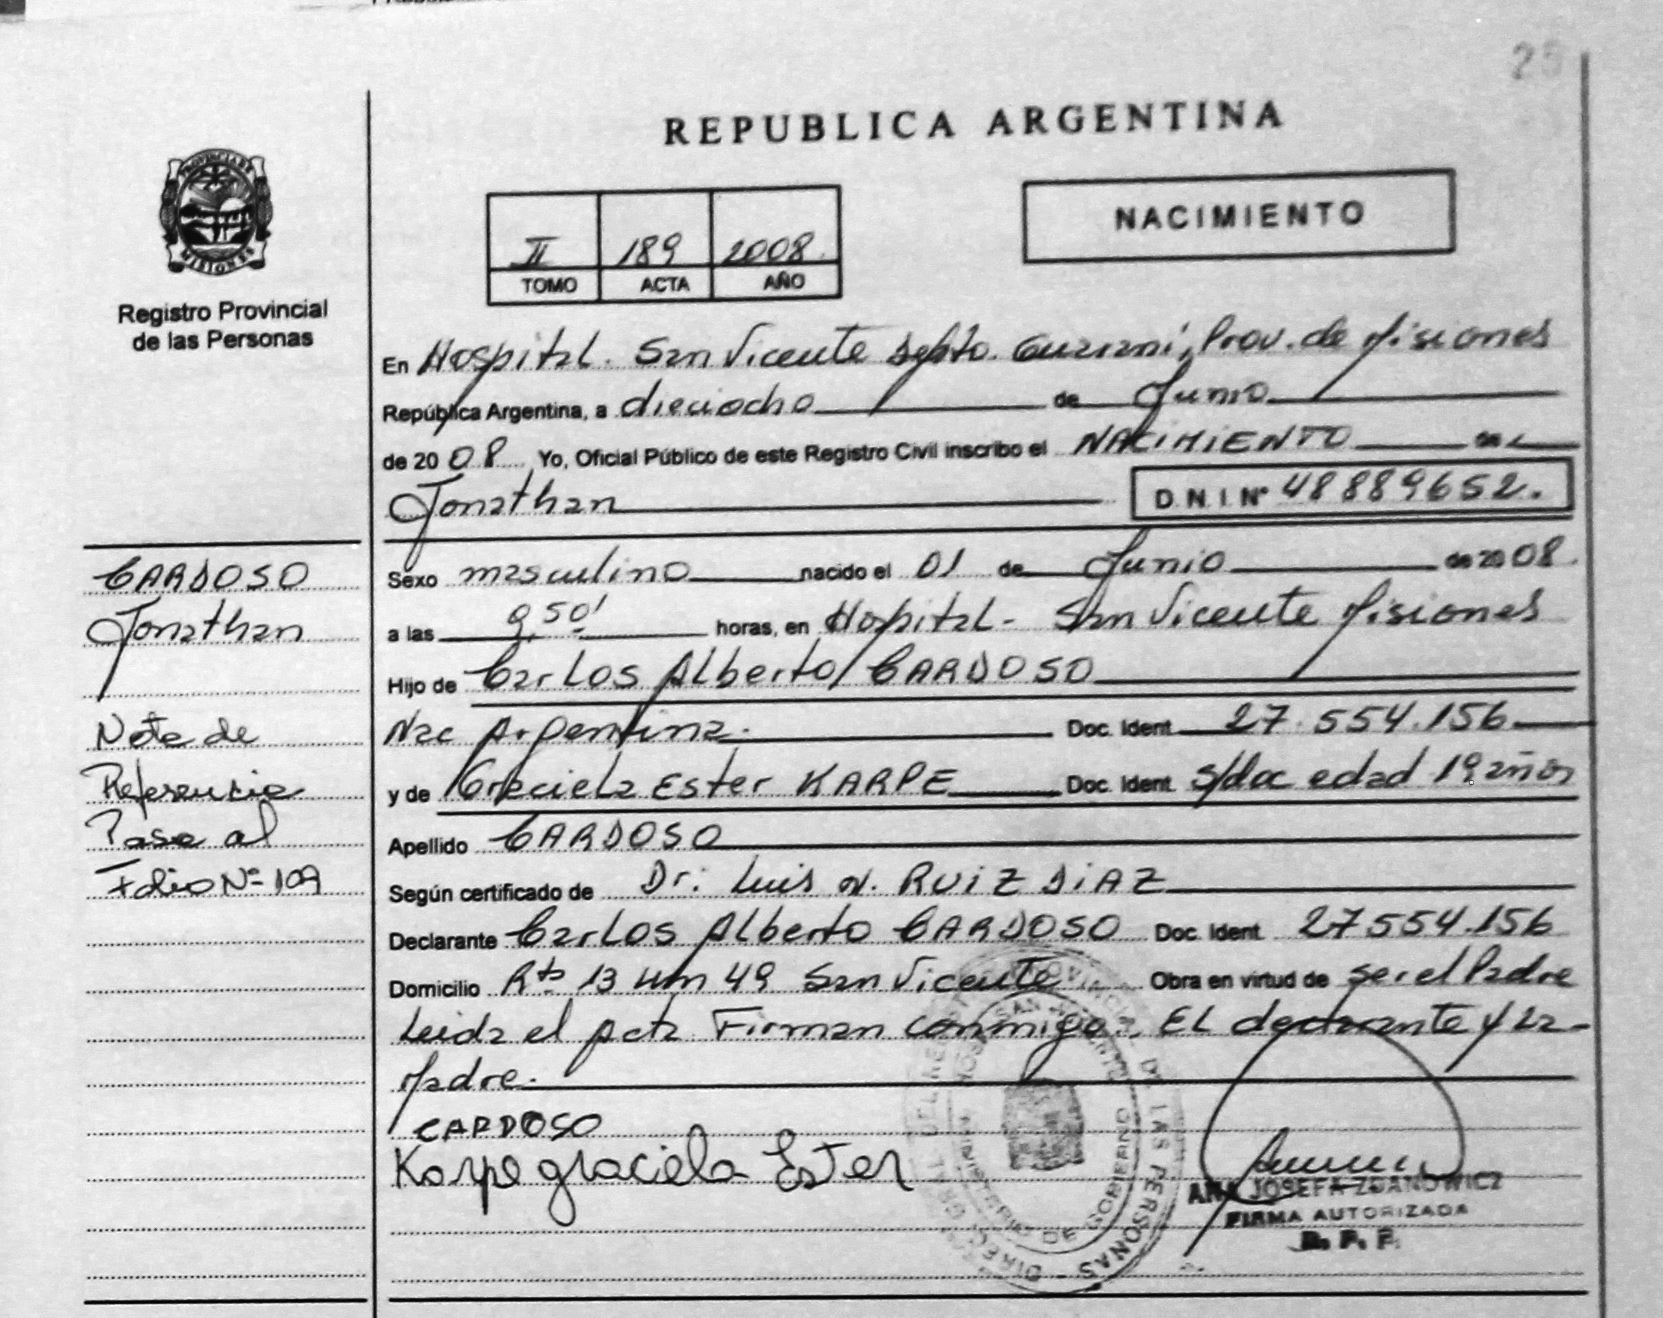 25
REPUBLICA ARGENTINA
PROVINCIA DE
MISIONES
Registro Provincial
de las Personas
II 189 2008.
TOMO ACTA AÑO
NACIMIENTO
En Hospital. San Vicente Depto. Guaraní, Prov. de Misiones
República Argentina, a dieciocho de Junio
de 20 08 Yo, Oficial Público de este Registro Civil inscribo el NACIMIENTO de
Jonathan D.N.I. Nº 48889652.
Sexo masculino nacido el 01 de Junio de 20 08.
a las 9,50' horas, en Hospital - San Vicente Misiones
Hijo de Carlos Alberto CARDOSO
Nac Argentina. Doc. Ident. 27.554.156
y de Graciela Ester KARPE Doc. Ident. s/doc edad 19 años
Apellido CARDOSO
Según certificado de Dr. Luis N. RUIZ DIAZ
Declarante Carlos Alberto CARDOSO Doc. Ident. 27554.156
Domicilio Rta 13 Km 49 San Vicente Obra en virtud de ser el Padre
Leida el Acta Firman conmigo. EL declarante y La
Madre.
CARDOSO
Karpe graciela Ester
CARDOSO
Jonathan
Nota de
Referencia
Pasa al
Folio Nº 109
DIRECC. GRAL. DEL REGISTRO PROVINCIAL DE LAS PERSONAS
MINISTERIO DE GOBIERNO
ANA JOSEFA ZDANOWICZ
FIRMA AUTORIZADA